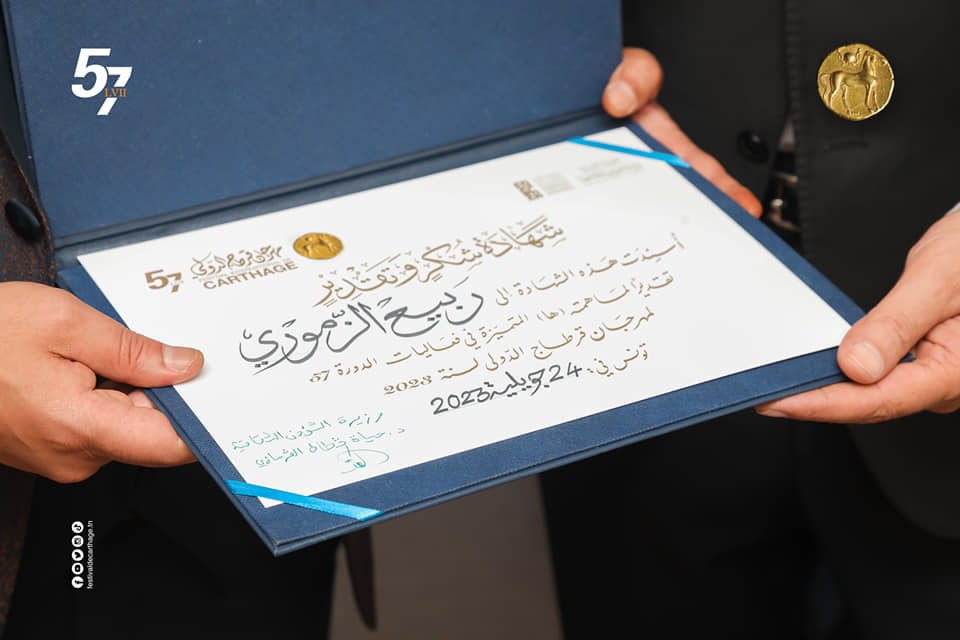 57
LVII
مهرجان قرطاج الدولي
57
CARTHAGE
شهادة شكر وتقدير
أسندت هذه الشهادة إلى ربيع الزموري
تقديرًا لمساهمته (ها) المتميزة في فعاليات الدورة 57
لمهرجان قرطاج الدولي لسنة 2023
تونس في: 24 جويلية 2023
وزيرة الشؤون الثقافية
د. حياة قطاط القرمازي
festivaldecarthage.tn